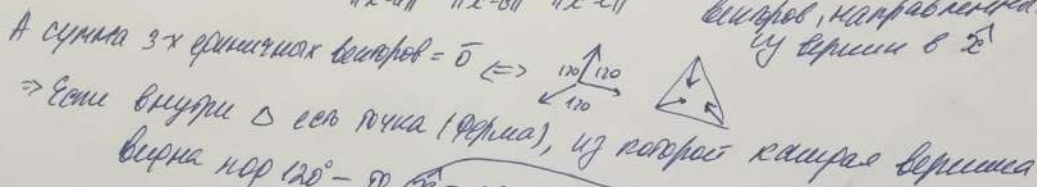 ||x-a|| ||x-b|| ||x-c||
векторов, направленных
из вершин в x̄
А сумма 3-х единичных векторов = 0̄ <=> 120 120 120
=> Если внутри △ есть точка (Ферма), из которой каждая вершина
видна под 120° – то